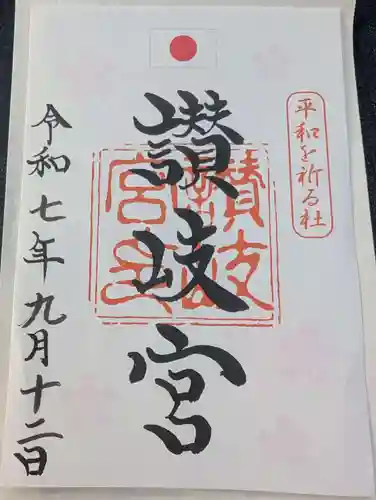 平和を祈る社
讃岐宮
讃岐宮
令和七年九月十二日